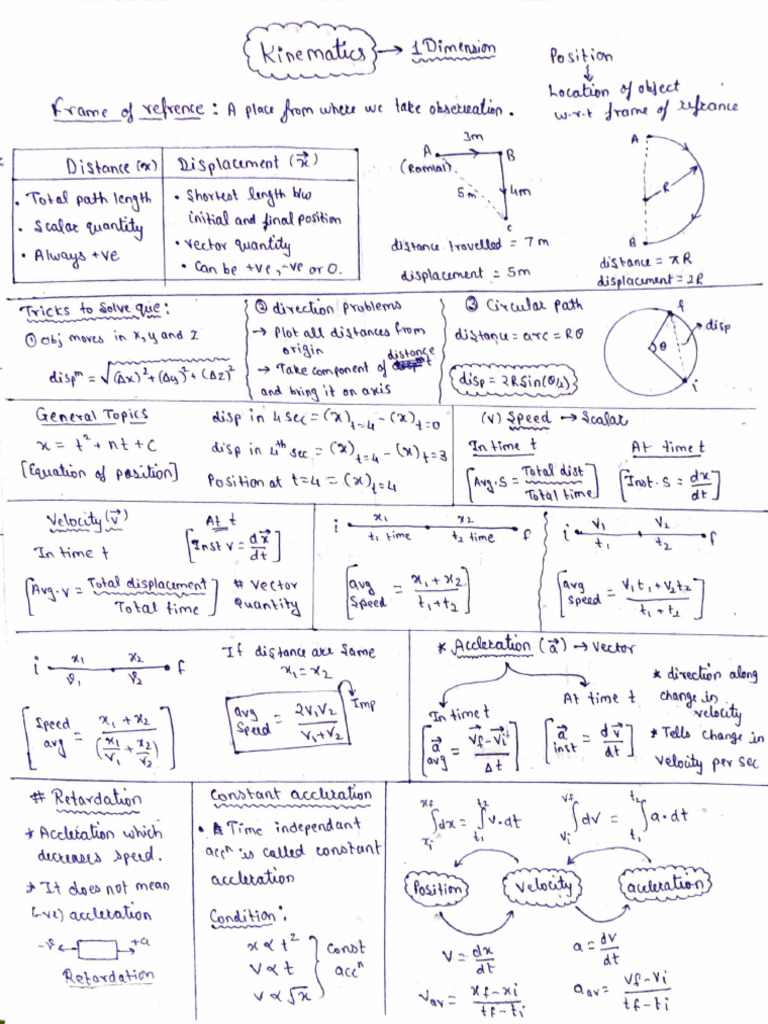 Kinematics → 1 Dimension
Position
↓
Location of object
w.r.t frame of refrance
Frame of refrence : A place from where we take observation.
Distance (x)
• Total path length
• Scalar quantity
• Always +ve
Displacement (x⃗)
• Shortest length b/w
initial and final position
• Vector quantity
• Can be +ve, -ve or 0.
A
3m
B
5m
4m
C
distance travelled = 7m
displacement = 5m
A
R
B
distance = πR
displacement = 2R
Tricks to Solve que:
① Obj moves in x, y and z
dispᵐ = √(Δx)²+(Δy)²+(Δz)²
② direction problems
→ Plot all distances from
origin
→ Take component of distance
and bring it on axis
③ Circular path
distance = arc = Rθ
disp = 2R sin(θ/2)
f
disp
θ
i
General Topics
x = t² + nt + c
[Equation of position]
disp in 4 sec = (x)t=4 − (x)t=0
disp in 4th sec = (x)t=4 − (x)t=3
Position at t=4 = (x)t=4
(v) Speed → Scalar
In time t
[Avg. S = Total dist / Total time]
At time t
[Inst. S = dx/dt]
Velocity (v⃗)
In time t
[Avg. v = Total displacement / Total time]
At t
[Inst v = dx⃗/dt]
# vector
quantity
i x₁ x₂ f
t₁ time t₂ time
[avg speed = x₁+x₂ / t₁+t₂]
i v₁ v₂ f
t₁ t₂
[avg speed = v₁t₁+v₂t₂ / t₁+t₂]
i x₁ x₂ f
v₁ v₂
[Speed avg = x₁+x₂ / (x₁/v₁ + x₂/v₂)]
If distance are same
x₁ = x₂
avg speed = 2v₁v₂ / v₁+v₂
Imp
* Accleration (a⃗) → vector
In time t
[a⃗ avg = v⃗f − v⃗i / Δt]
At time t
[a⃗ inst = dv⃗/dt]
* direction along
change in
velocity
* Tells change in
velocity per sec
# Retardation
* Accleration which
decreases speed.
* It does not mean
(-ve) accleration
-v +a
Retardation
Constant accleration
• Time independant
accⁿ is called constant
accleration
Condition:
x ∝ t²
v ∝ t
v ∝ √x
const
accⁿ
∫xi^xf dx = ∫t₁^t₂ v·dt
∫vi^vf dv = ∫t₁^t₂ a·dt
Position
velocity
accleration
v = dx/dt
vav = xf−xi / tf−ti
a = dv/dt
aav = vf−vi / tf−ti